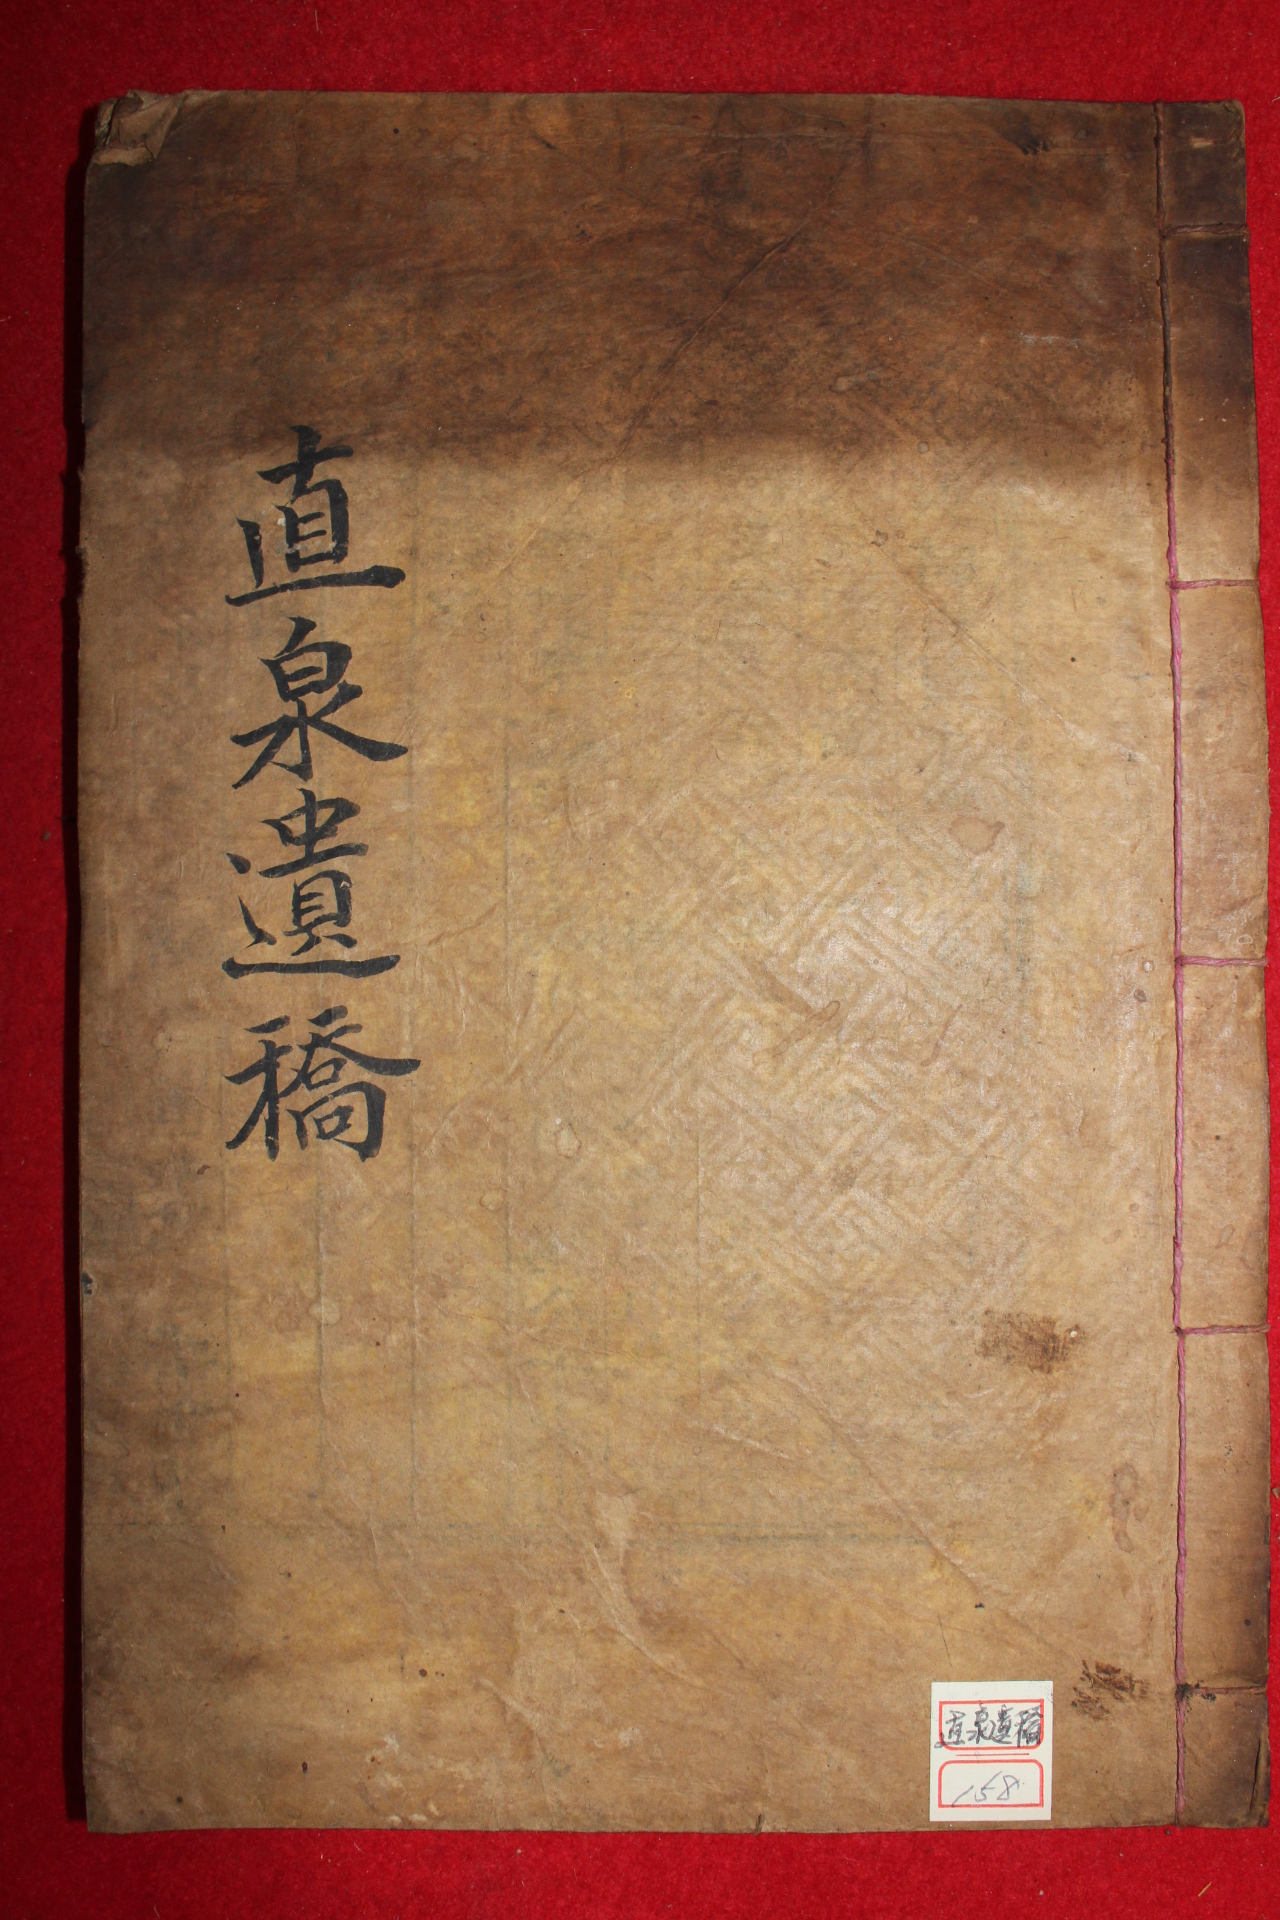 直泉遺稿
直泉遺稿
158